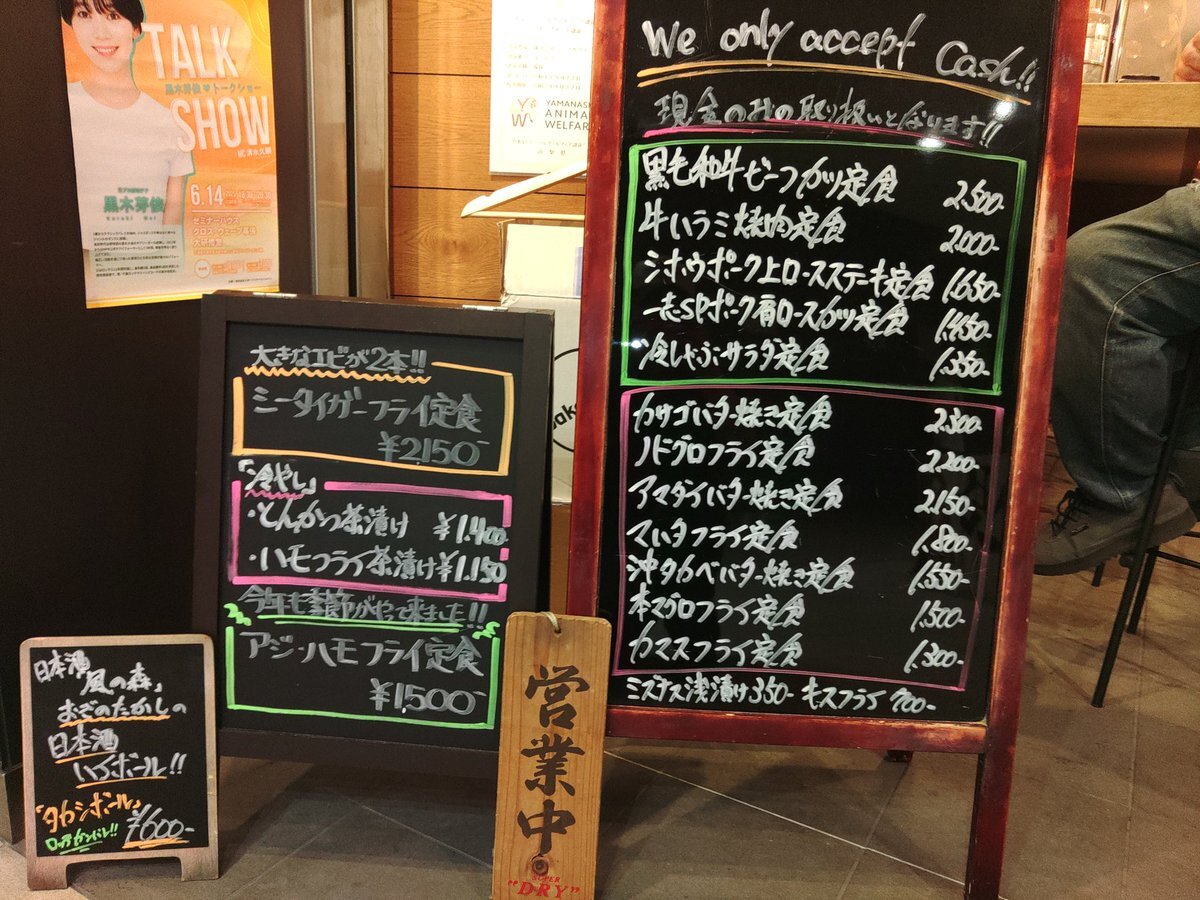 TALK
黒木芽俊♥トークショー
SHOW
6.14
セミナーハウス
クロス・ウェーブ幕張
大研修室
黒木芽俊
Kuroki Mei
YAMANASHI
ANIMAL
WELFARE
We only accept Cash!!
現金のみの取り扱いとなります!!
黒毛和牛ビーフカツ定食 2.500-
牛ハラミ焼肉定食 2.000-
シホウポーク上ロースステーキ定食 1.650-
一志SPポーク肩ロースカツ定食 1.450-
冷しゃぶサラダ定食 1.350-
カサゴバター焼き定食 2.300-
ノドグロフライ定食 2.200-
アマダイバター焼き定食 2.150-
マハタフライ定食 1.800-
沖タカベバター焼き定食 1.550-
本マグロフライ定食 1.500-
カマスフライ定食 1.300-
ミズナス浅漬け350- キスフライ700-
大きなエビが2本!!
シータイガーフライ定食
¥2150-
「冷やし」
・とんかつ茶漬け ¥1.400-
・ハモフライ茶漬け¥1.150
今年も季節がやって来ました!!
アジ・ハモフライ定食
¥1,500-
日本酒
風の森」
おぎのたかしの
日本酒
ハイボール!!
「タカシボール」
¥600-
営業中
SUPER
"DRY"